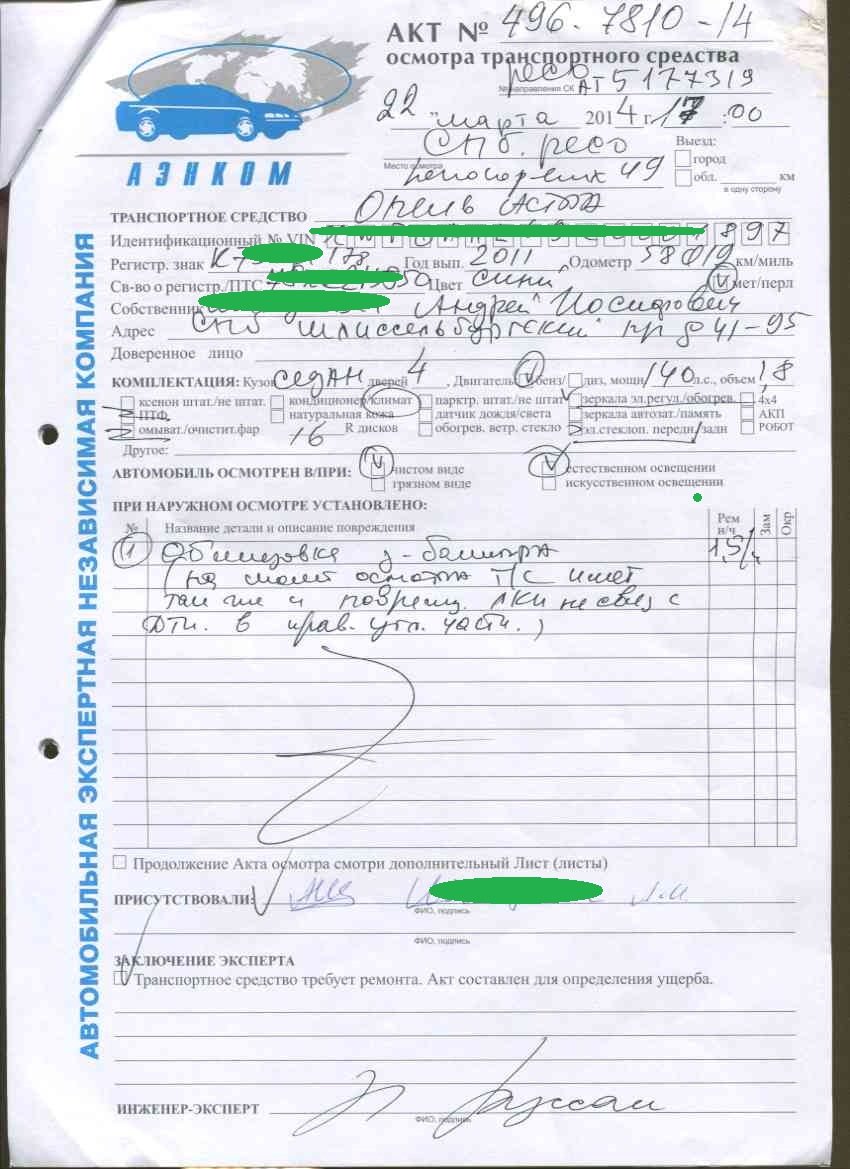 АКТ № 496-7810-14
осмотра транспортного средства
ресо
№ направления СК АТ5177319
22 " марта 2014 г. 17:00
АЭНКОМ
СПб. ресо
Место осмотра
49
Выезд:
город
обл. км
в одну сторону
ТРАНСПОРТНОЕ СРЕДСТВО Опель Астра
Идентификационный № VIN 897
Регистр. знак К 178 Год вып. 2011 Одометр 58019 км/миль
Св-во о регистр./ПТС Цвет синий мет/перл
Собственник Андрей Иосифович
Адрес СПб Шлиссельбургский пр д 41-95
Доверенное лицо
КОМПЛЕКТАЦИЯ: Кузов седан дверей 4, Двигатель бенз/ диз, мощн 140 л.с., объем 1,8
ксенон штат./не штат. кондиционер/климат парктр. штат./не штат зеркала эл.регул./обогрев. 4x4
ПТФ натуральная кожа датчик дождя/света зеркала автозат./память АКП
омыват./очистит.фар 16 R дисков обогрев. ветр. стекло эл.стеклоп. передн/задн РОБОТ
Другое:
АВТОМОБИЛЬ ОСМОТРЕН В/ПРИ: чистом виде естественном освещении
грязном виде искусственном освещении
ПРИ НАРУЖНОМ ОСМОТРЕ УСТАНОВЛЕНО:
№ Название детали и описание повреждения Рем н/ч Зам Окр
1 Облицовка з-бампера 1,5
(на момент осмотра Т/С имеет
так же и поврежд. ЛКП не связ с
ДТП. в прав. угл. части.)
Продолжение Акта осмотра смотри дополнительный Лист (листы)
ПРИСУТСТВОВАЛИ:
ФИО, подпись
ФИО, подпись
ЗАКЛЮЧЕНИЕ ЭКСПЕРТА
Транспортное средство требует ремонта. Акт составлен для определения ущерба.
ИНЖЕНЕР-ЭКСПЕРТ
ФИО, подпись
АВТОМОБИЛЬНАЯ ЭКСПЕРТНАЯ НЕЗАВИСИМАЯ КОМПАНИЯ